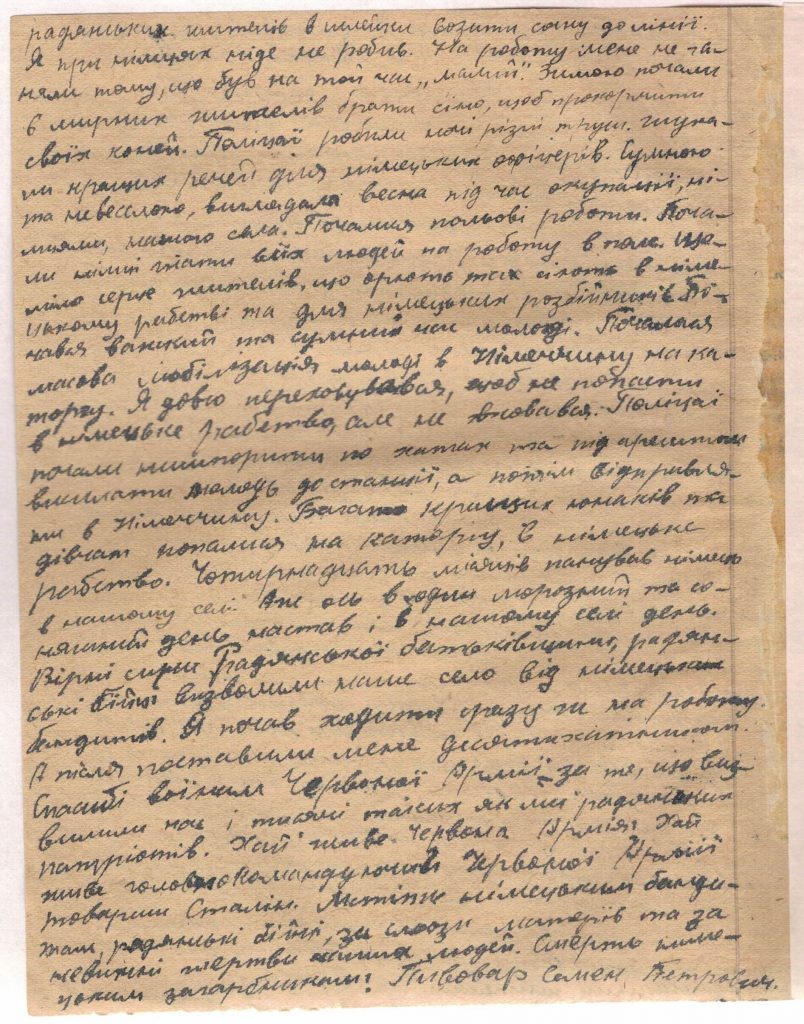 радянських жителів в шлейки возити сану до лінії.
Я при німцях ніде не робив. На роботу мене не га-
няли тому, що був на той час „малий". Зимою почали
в мирних жителів брати сіно, щоб прокормити
своїх коней. Поліцаї робили ночі різні труси. шука-
ли кращих речей для німецьких офіцерів. Сумною
та невеселою, виглядала весна під час окупації, ні-
мцями, нашого села. Почалися польові роботи. Поча-
ли німці гнати всіх людей на роботу в поле. Що-
міло серце жителів, що орють та сіють в німе-
цькому рабстві та для німецьких розбійників. По-
чався важкий та сумний час молоді. Почалася
масова мобілізація молоді в Німеччину на ка-
торгу. Я довго переховувався, щоб не попасти
в німецьке рабство, але не вховався. Поліцаї
почали нишпорити по хатах та під арештом
висилати молодь до станції, а потім відправля-
ти в Німеччину. Багато кращих юнаків та
дівчат попалися на каторгу, в німецьке
рабство. Чотирнадцять місяців панував німець
в нашому селі. Аж ось в один морозний та со-
няшний день настав і в нашому селі день.
Вірні сини Радянської батьківщини, радян-
ські бійці визволили наше село від німецьких
бандитів. Я почав ходити сразу чи на роботу.
А після поставили мене десятихатником.
Спасибі воїнам Червоної Армії за те, що виз-
волили нас і тисячі таких як ми радянських
патріотів. Хай живе Червона Армія! Хай
живе головнокомандуючий Червоної Армії
товариш Сталін. Мстіть німецьким банди-
там, радянські бійці, за сльози матерів та за
невинні жертви наших людей. Смерть німе-
цьким загарбникам! Пивовар Семен Петрович.